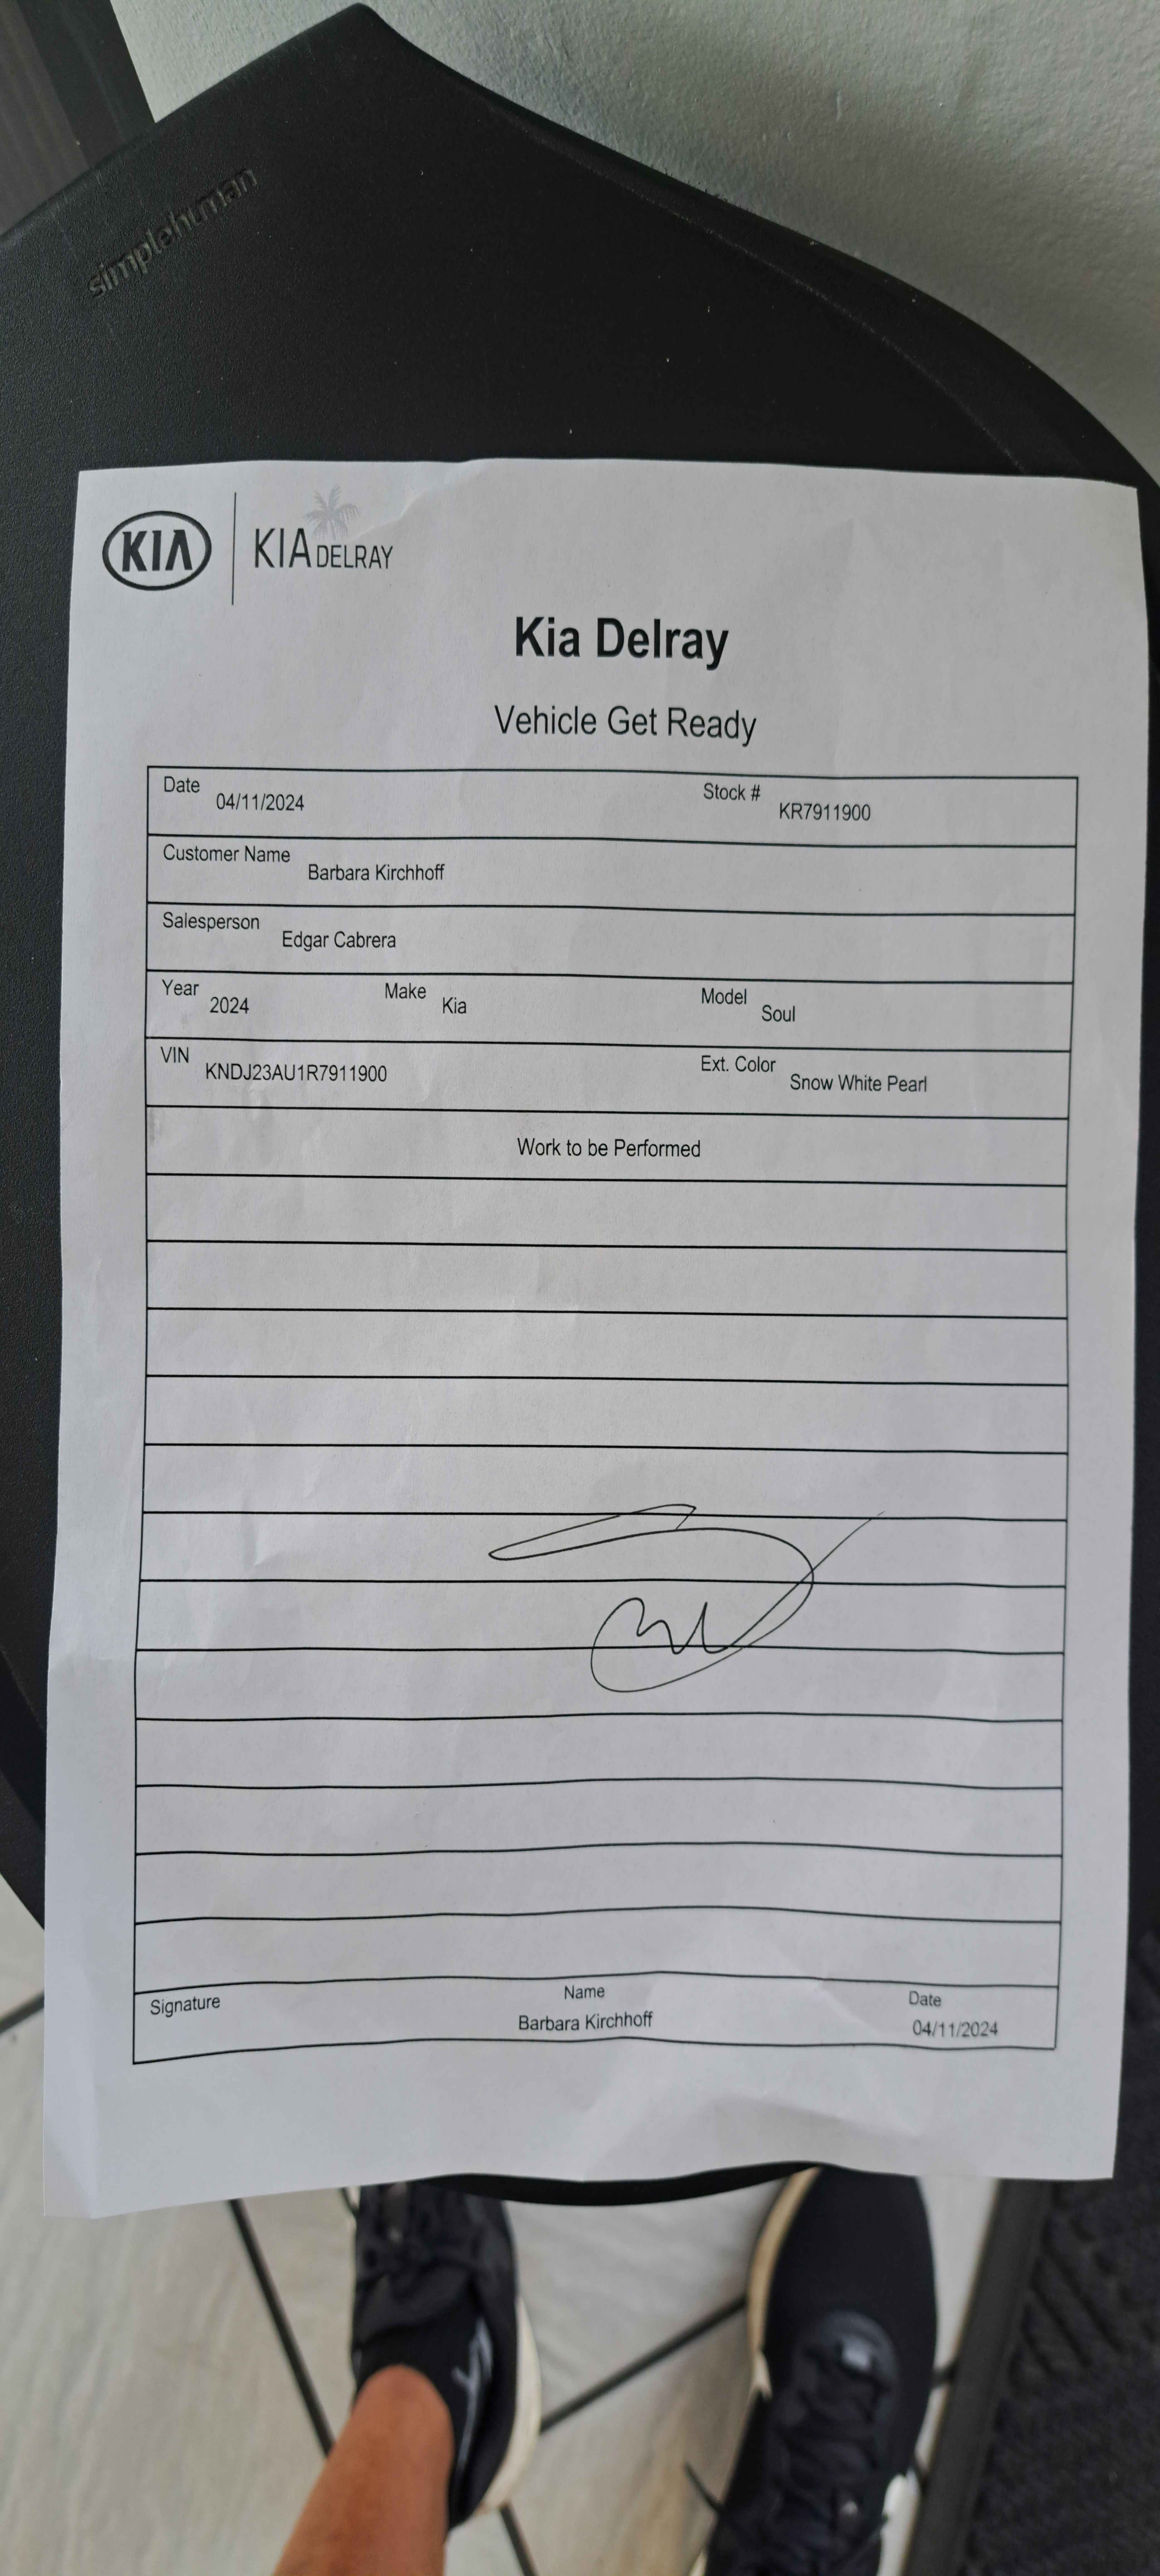 simplehuman
KIA KIA DELRAY
Kia Delray
Vehicle Get Ready
Date 04/11/2024 Stock # KR7911900
Customer Name Barbara Kirchhoff
Salesperson Edgar Cabrera
Year 2024 Make Kia Model Soul
VIN KNDJ23AU1R7911900 Ext. Color Snow White Pearl
Work to be Performed
Signature Name Date
Barbara Kirchhoff 04/11/2024